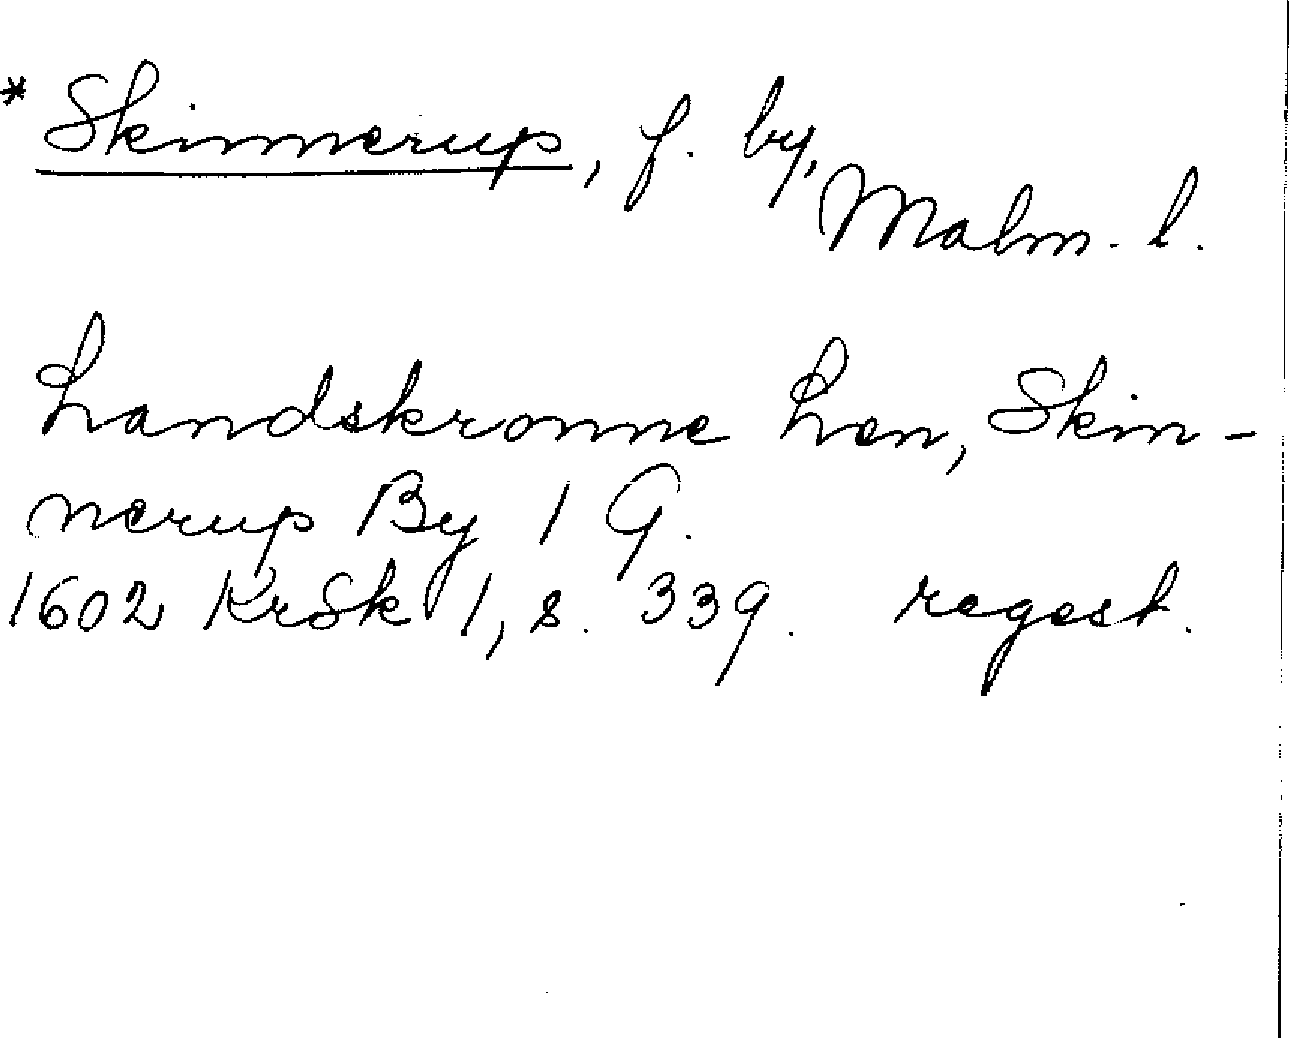 * Skinnerup, f. by, Malm. l.
Landskronne Len, Skin-
nerup By 1 G.
1602 KrSk 1, s. 339. regest.